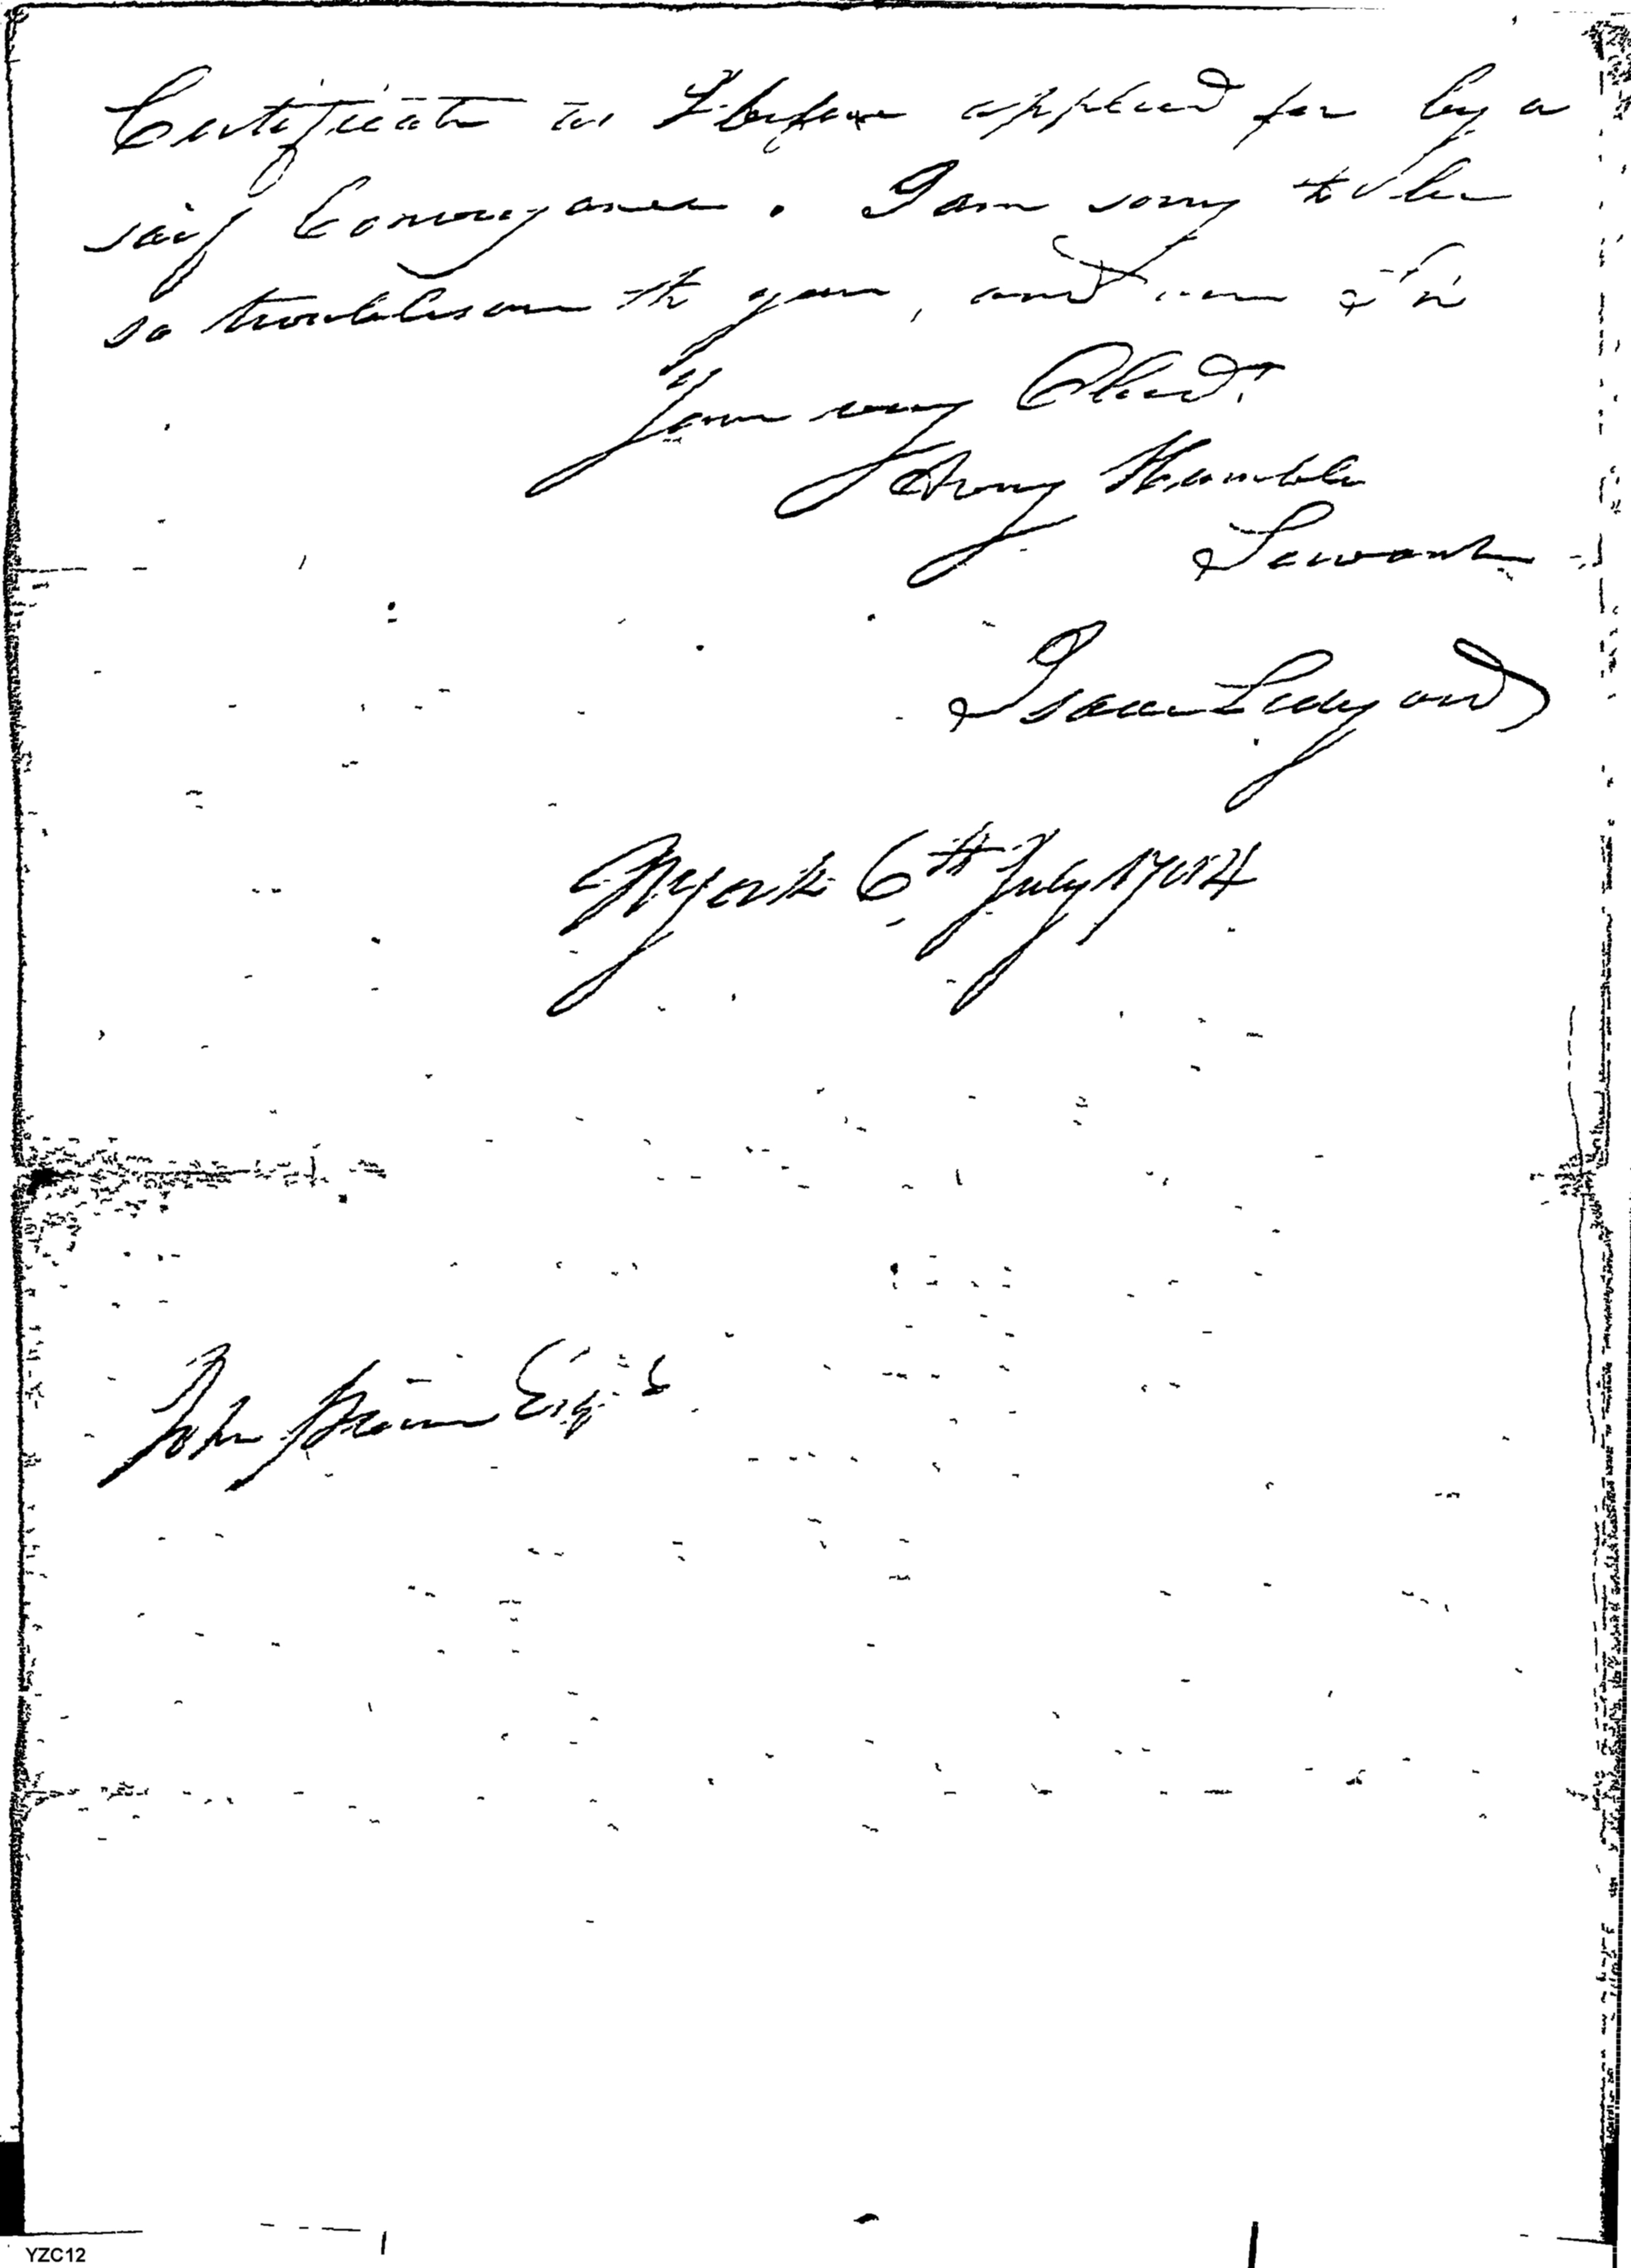 Certificate as I before applied for by a
saif Conveyance. I am sorry to be
so troublesome to you, and am S'r
Your very Obed.t
& very Humble
Servant
Isaac Ledyard
NYork 6th July 1784
John Esq.r
YZC12